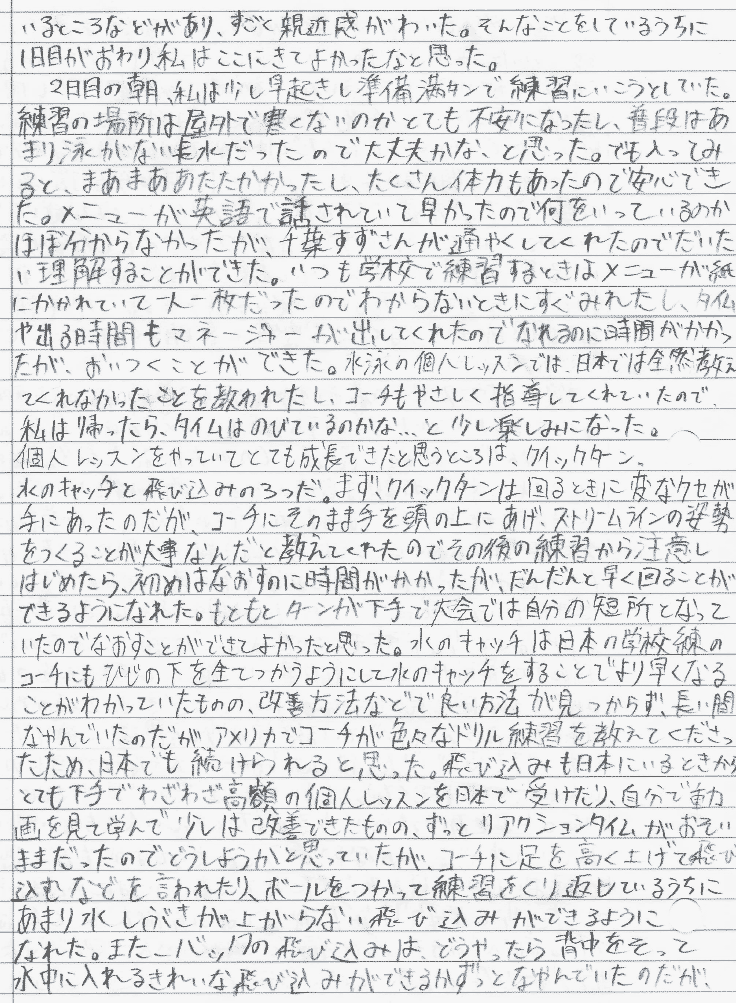 いるところなどがあり、すごく親近感がわいた。そんなことをしているうちに
1日目がおわり、私はここにきてよかったなと思った。
2日目の朝、私は少し早起きし準備満タンで練習にいこうとしていた。
練習の場所は屋外で寒くないのかとても不安になったし、普段はあ
まり泳がない長水だったので大丈夫かな、と思った。でも入ってみ
ると、まあまああたたかかったし、たくさん体力もあったので安心でき
た。メニューが英語で話されていて早かったので何をいっているのか
ほぼ分からなかったが、千葉すずさんが通やくしてくれたのでだいた
い理解することができた。いつも学校で練習するときはメニューが紙
にかかれていて一人一枚だったのでわからないときにすぐみれたし、タイム
や出る時間もマネージャーが出してくれたのでなれるのに時間がかかっ
たが、おいつくことができた。水泳の個人レッスンでは、日本では全然教え
てくれなかったことを教われたし、コーチもやさしく指導してくれていたので、
私は帰ったら、タイムはのびているのかな…と少し楽しみになった。
個人レッスンをやっていてとても成長できたと思うところは、クイックターン、
水のキャッチと飛び込みの3つだ。まず、クイックターンは回るときに変なクセが
手にあったのだが、コーチにそのまま手を頭の上にあげ、ストリームラインの姿勢
をつくることが大事なんだと教えてくれたのでその後の練習から注意し
はじめたら、初めはなおすのに時間がかかったが、だんだんと早く回ることが
できるようになれた。もともとターンが下手で大会では自分の短所となって
いたのでなおすことができてよかったと思った。水のキャッチは日本の学校練の
コーチにもひじの下を全てつかうようにして水のキャッチをすることでより早くなる
ことがわかっていたものの、改善方法などで良い方法が見つからず、長い間
なやんでいたのだが、アメリカでコーチが色々なドリル練習を教えてくださっ
たため、日本でも続けられると思った。飛び込みも日本にいるときから
とても下手でわざわざ高額の個人レッスンを日本で受けたり、自分で動
画を見て学んで少しは改善できたものの、ずっとリアクションタイムがおそい
ままだったのでどうしようかと思っていたが、コーチに足を高く上げて飛び
込むなどを言われたり、ボールをつかって練習をくり返しているうちに
あまり水しぶきが上がらない飛び込みができるように
なれた。また、バックの飛び込みは、どうやったら背中をそって
水中に入れるきれいな飛び込みができるかずっとなやんでいたのだが、